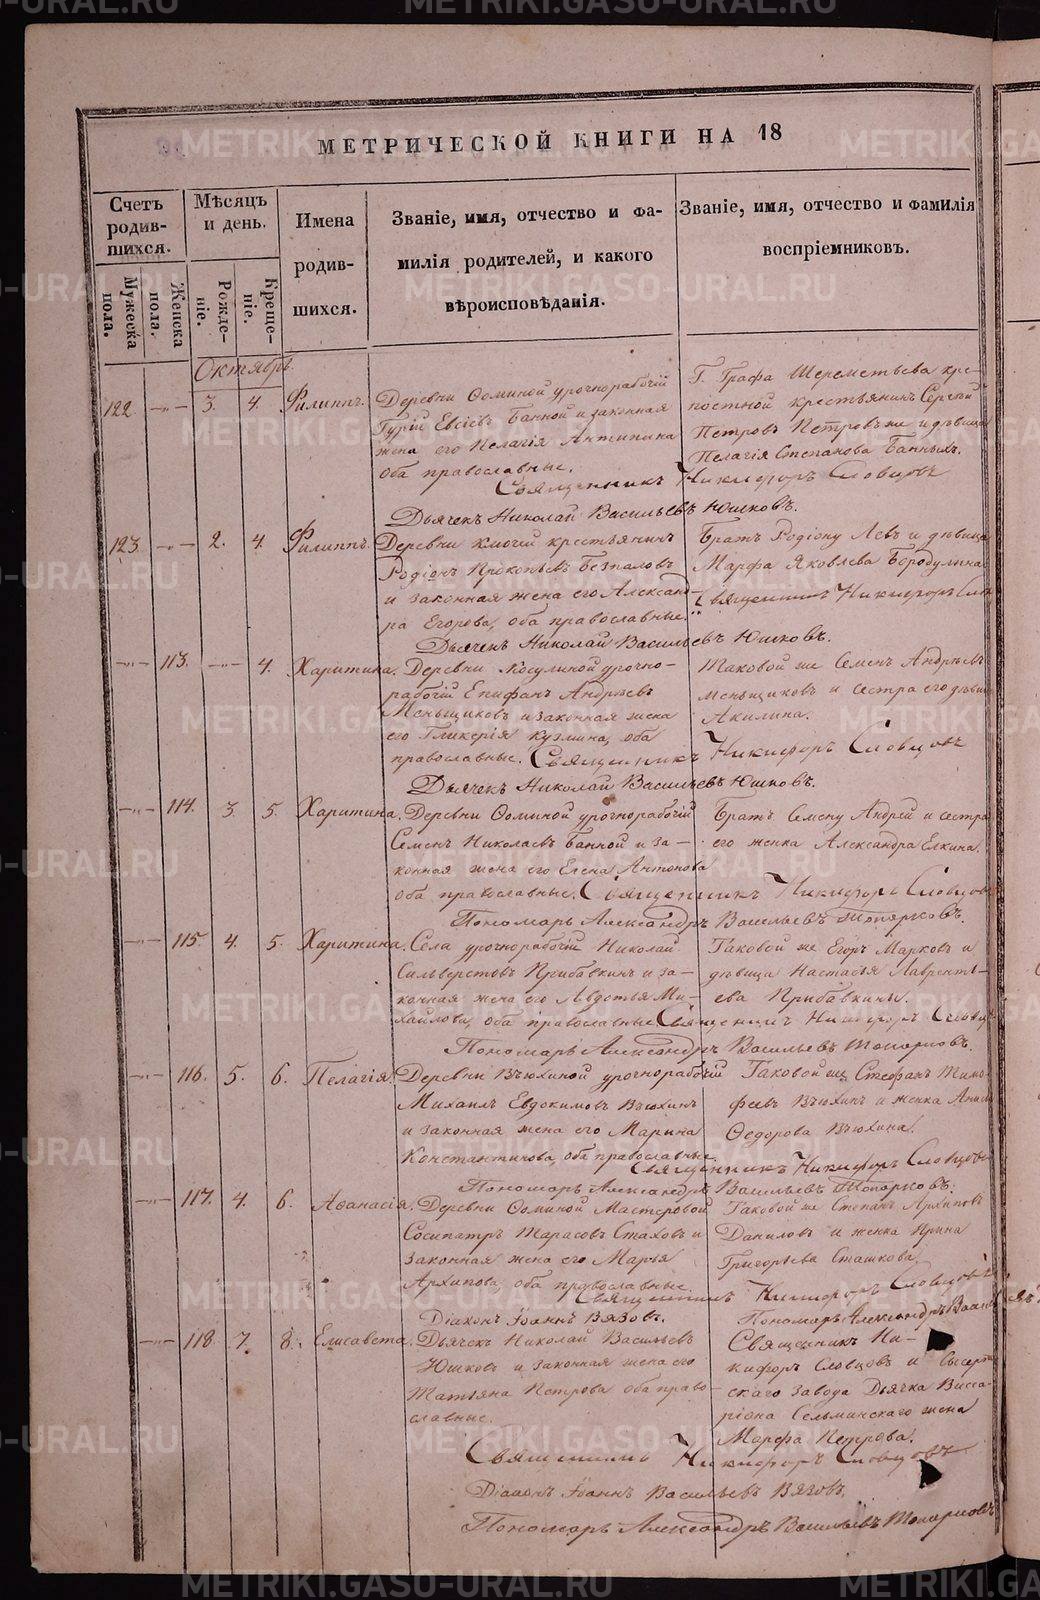 МЕТРИЧЕСКОЙ КНИГИ НА 18
Счетъ родив-шихся.
Мѣсяцъ и день.
Имена родив-шихся.
Званіе, имя, отчество и фа-
милія родителей, и какого
вѣроисповѣданія.
Званіе, имя, отчество и фамилія
воспріемниковъ.
Мужеска пола.
Женска пола.
Рожде-ніе.
Креще-ніе.
Октябрь.
122 —„— 3. 4. Филиппъ.
Деревни Ѳоминой урочнорабочій
Гурій Евсіевъ Банной и законная
жена его Пелагія Антипина
оба православные.
Г. Графа Шереметьева кре-
постной крестьянинъ Сергій
Петровъ Петровъ же и дѣвица
Пелагія Степанова Банныхъ.
Священникъ Никифоръ Словцовъ
Дьячекъ Николай Васильевъ Юшковъ.
123 —„— 2. 4. Филиппъ.
Деревни Ключей крестьянинъ
Родіонъ Прокопьевъ Безпаловъ
и законная жена его Александ-
ра Егорова, оба православные.
Братъ Родіону Левъ и дѣвица
Марфа Яковлева Бородулина
Священникъ Никифоръ Слов
Дьячекъ Николай Васильевъ Юшковъ.
—„— 113. —„— 4. Харитина.
Деревни Косулиной урочно-
рабочій Епифанъ Андреевъ
Меньщиковъ и законная жена
его Гликерія Кузмина, оба
православные.
Таковой же Семенъ Андреевъ
Меньщиковъ и сестра его дѣви
Акилина.
Священникъ Никифоръ Словцовъ
Дьячекъ Николай Васильевъ Юшковъ.
—„— 114. 3. 5. Харитина.
Деревни Ѳоминой урочнорабочій
Семенъ Николаевъ Банной и за-
конная жена его Елена Антонова
оба православные.
Братъ Семену Андрей и сестра
его женка Александра Елкина.
Священникъ Никифоръ Словцов
Пономарь Александръ Васильевъ Топорковъ.
—„— 115. 4. 5. Харитина.
Села урочнорабочій Николай
Сильверстовъ Прибавкинъ и за-
конная жена его Авдотья Ми-
хайлова, оба православные
Таковой же Егоръ Марковъ и
дѣвица Настасья Лавренть-
ева Прибавкины.
Священникъ Никифоръ Словцо
Пономарь Александръ Васильевъ Топорковъ.
—„— 116. 5. 6. Пелагія.
Деревни Вьюхиной урочнорабочій
Михаилъ Евдокимовъ Вьюхинъ
и законная жена его Марина
Константинова, оба православные.
Таковой же Стефанъ Тимо-
феевъ Вьюхинъ и женка
Ѳедорова Вьюхина.
Священникъ Никифоръ Словцовъ
Пономарь Александръ Васильевъ Топорковъ.
—„— 117. 4. 6. Аѳанасія.
Деревни Ѳоминой Мастеровой
Сосипатръ Тарасовъ Стаховъ и
законная жена его Марья
Архипова, оба православные.
Таковой же Степанъ Архиповъ
Даниловъ и женка Ирина
Григорьева Сташкова.
Священникъ Никифоръ Словцовъ
Діаконъ Іоаннъ Вязовъ.
Пономарь Александръ Васил
—„— 118 7. 8. Елисавета.
Дьячекъ Николай Васильевъ
Юшковъ и законная жена его
Татьяна Петрова оба право-
славные.
Священникъ Ни-
кифоръ Словцовъ и Сысерт
скаго завода Дьячка Висса-
ріона Сельминскаго жена
Марфа Петрова.
Священникъ Никифоръ Словцовъ
Діаконъ Іоаннъ Васильевъ Вязовъ.
Пономарь Александръ Васильевъ Топорковъ